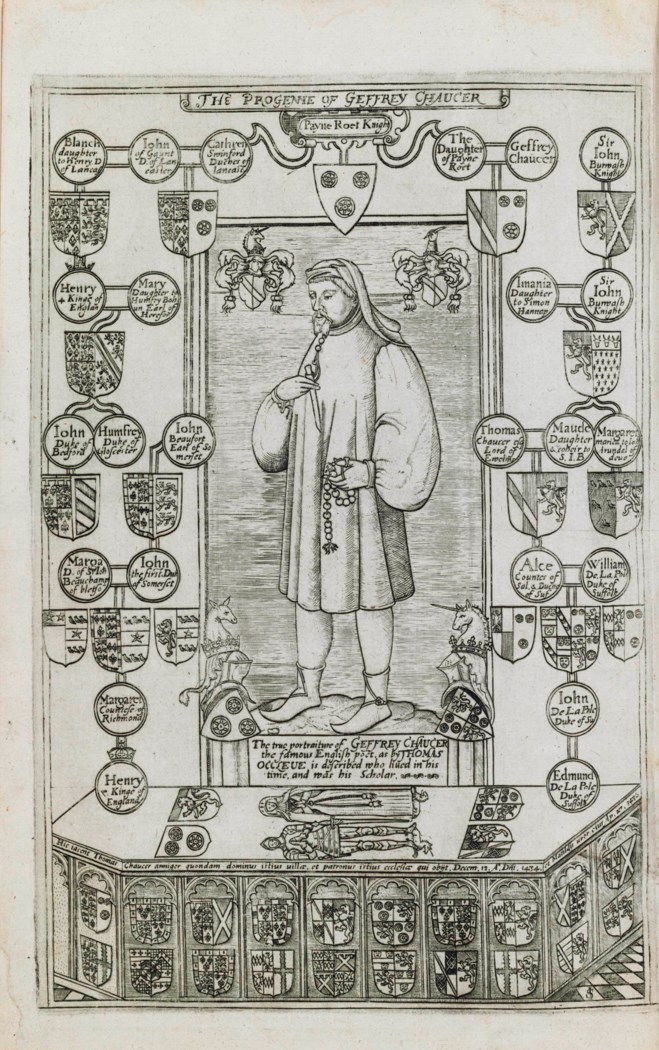 THE PROGENIE OF GEFFREY CHAUCER
Payne Roet Knight
Blanch
daughter
to Henry D
of Lancas
Iohn
of Gaunt
D. of Lan
caster
Swinford
Duches of
lancast
The
Daughter
of Payne
Roet
Geffrey
Chaucer
Sir
Iohn
Burwash
Knight
Henry
4 Kinge of
England
Mary
Daughter to
Humfry Boh
un Earl of
Hereford
Daughter
to Simon
Hannap
Sir
Iohn
Burwash
Knight
Iohn
Duke of
Bedford
Humfrey
Duke of
Glocester
Iohn
Beaufort
Earl of So
merset
Thomas
Chaucer esq
Lord of
Ewelme
Maude
Daughter
& coheir to
S. I. B.
Margaret
D. of
Beauchamp
of bletso
Iohn
the first Du
of Somerset
Alce
Countes of
Sal. & Duche
of Suf
William
De La Pol
Duke of
Suffolk
Margaret
Countese of
Richmond
Iohn
De La Pole
Duke of Su
Henry
7 Kinge of
England
Edmund
De La Pole
Duke of
Suffolk
The true portraiture of GEFFREY CHAUCER
the famous English poet, as by THOMAS
OCCLEUE is described who liued in his
time, and was his Scholar.
Hic iacent Thomas
Chaucer armiger quondam dominus istius villæ, et patronus istius ecclesiæ qui obijt